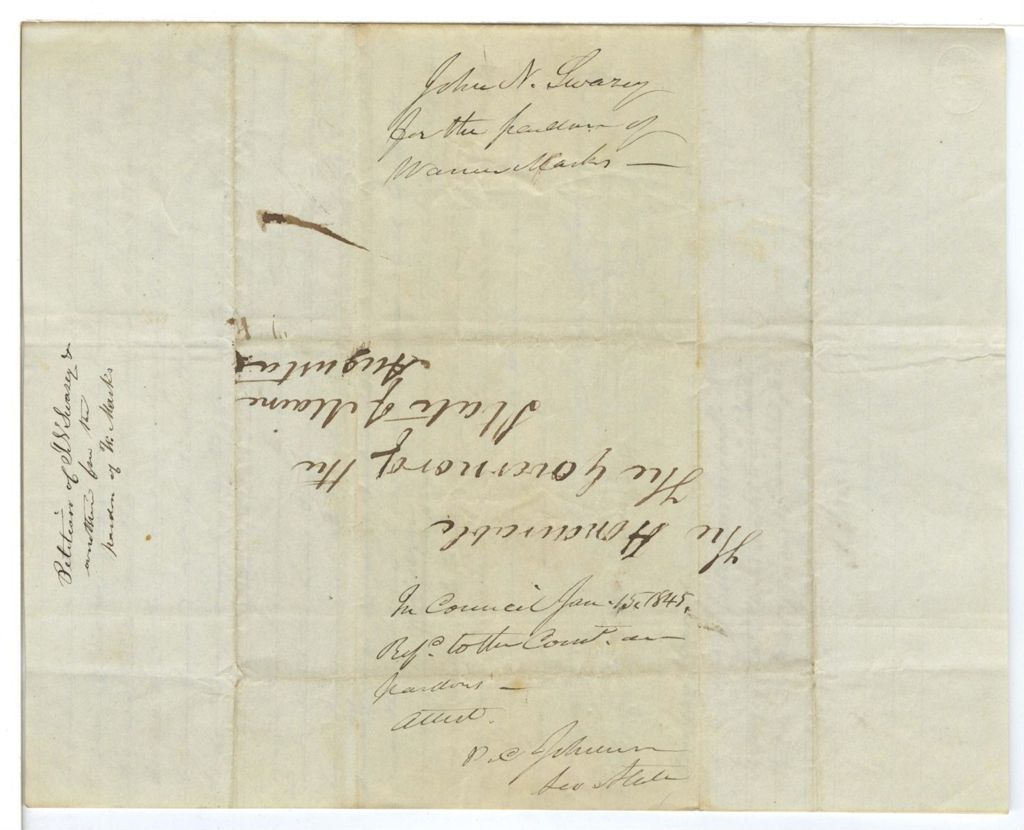 John N. Swazey
for the pardon of
Warren Marks —
The Honourable
The Governor of the
State of Maine
Augusta
In Council Jan. 15, 1845.
Refd. to the Comt. on
pardons —
Attest.
P. C. Johnson
Sec State
Petition of J. N. Swasey &
another for the
pardon of W. Marks